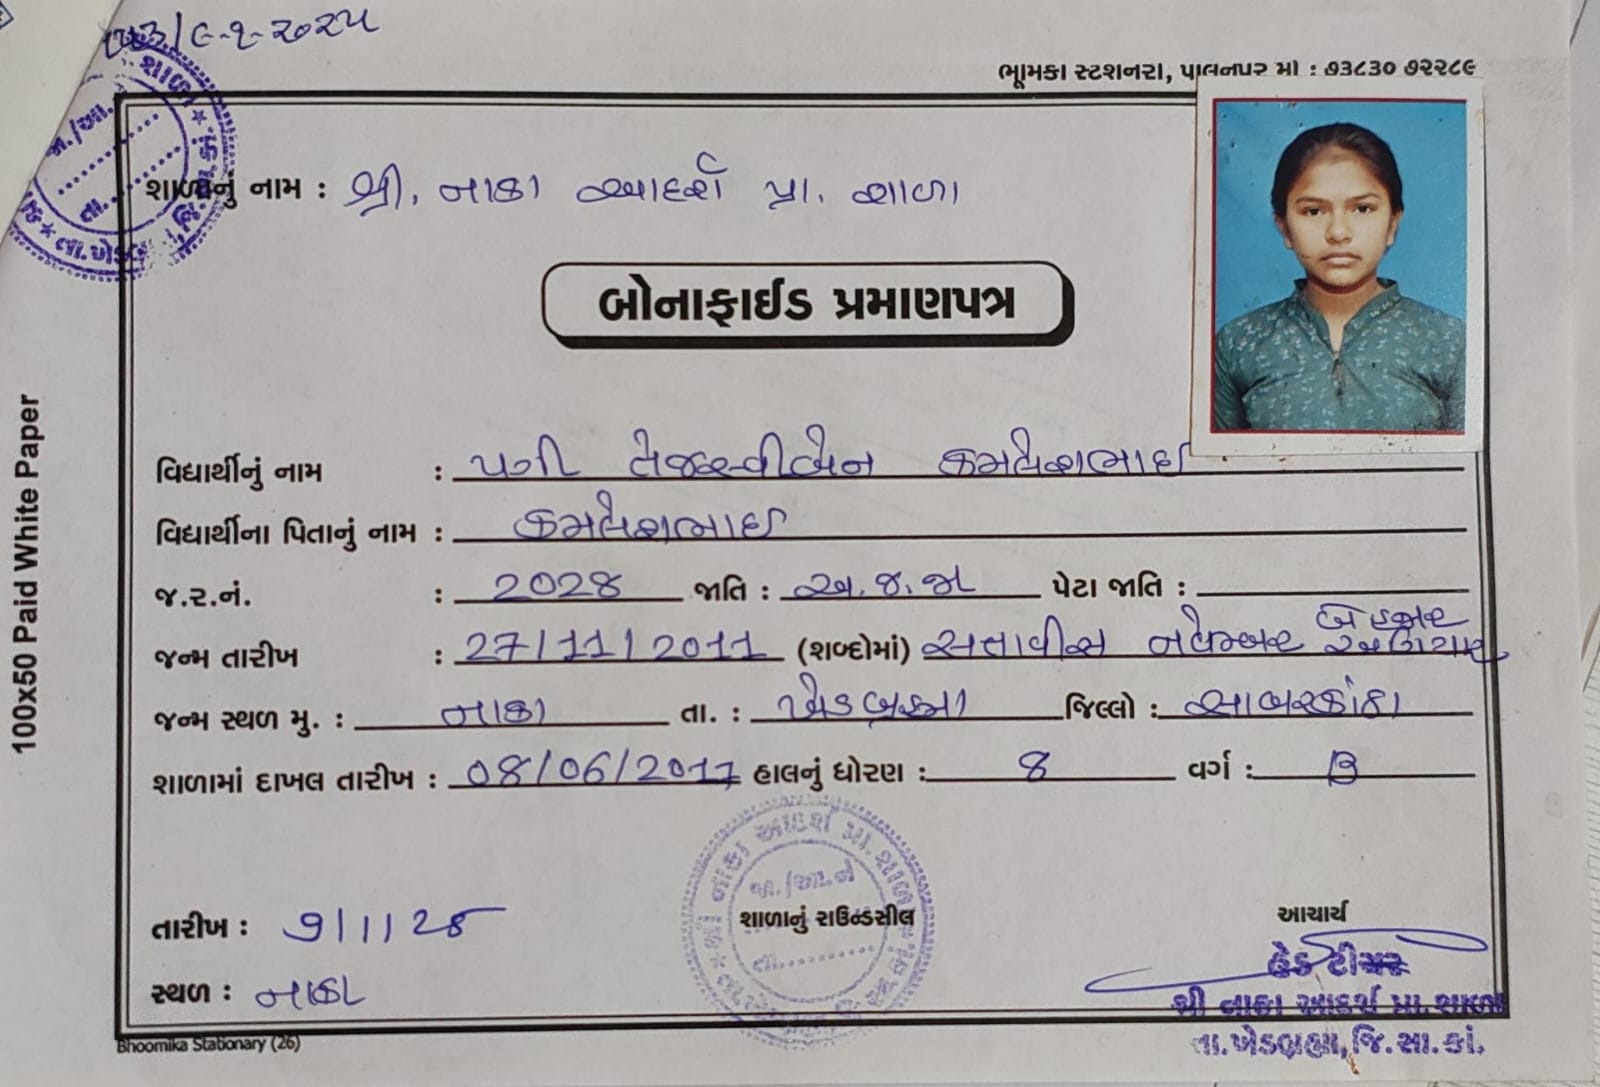 /૯-૧-૨૦૨૫
ભૂમિકા સ્ટેશનરી, પાલનપુર મો : ૭૩૮૩૦ ૭૨૨૮૯
શાળાનું નામ : શ્રી. નાકા આદર્શ પ્રા. શાળા
બોનાફાઈડ પ્રમાણપત્ર
વિદ્યાર્થીનું નામ : પગી તેજસ્વીબેન કમલેશભાઈ
વિદ્યાર્થીના પિતાનું નામ : કમલેશભાઈ
જ.ર.નં. : 2028 જાતિ : અ.જ.જા પેટા જાતિ :
જન્મ તારીખ : 27/11/2011 (શબ્દોમાં) સત્તાવીસ નવેમ્બર બે હજાર અગિયાર
જન્મ સ્થળ મુ. : નાકા તા. : ખેડબ્રહ્મા જિલ્લો : સાબરકાંઠા
શાળામાં દાખલ તારીખ : 08/06/2017 હાલનું ધોરણ : 8 વર્ગ : B
તારીખ : 9/1/25
શાળાનું રાઉન્ડસીલ
આચાર્ય
સ્થળ : નાકા
હેડ ટીચર
શ્રી નાકા આદર્શ પ્રા. શાળા
તા.ખેડબ્રહ્મા,જિ.સા.કાં.
Bhoomika Stationary (26)
100x50 Paid White Paper